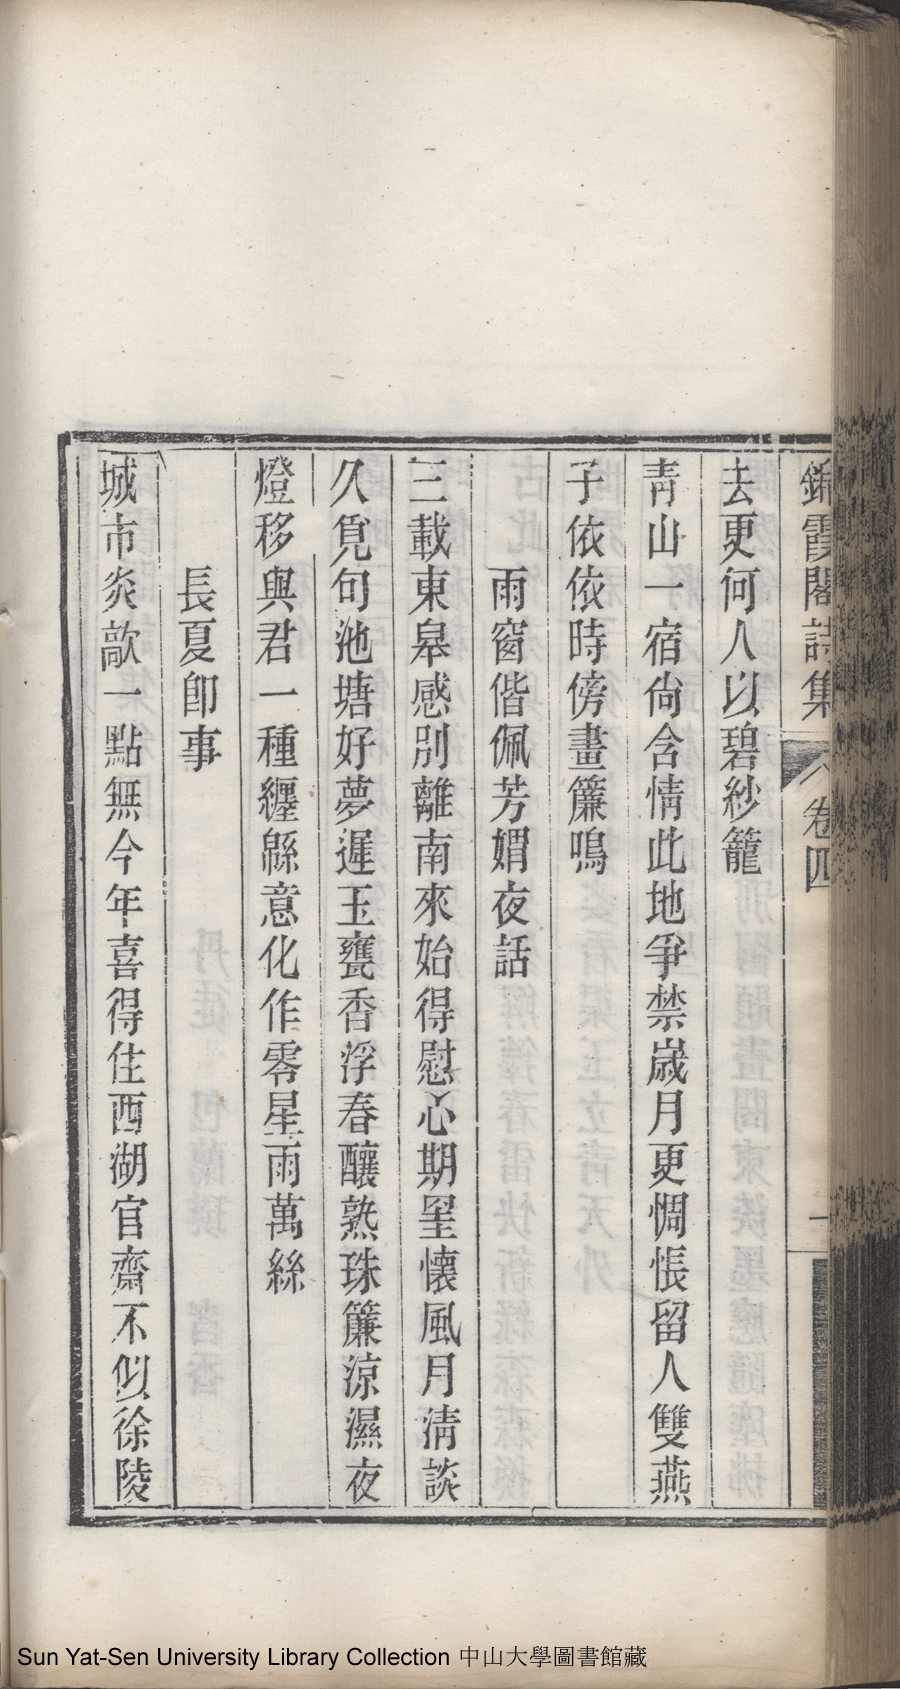 錦霞閣詩集 卷四 一
去更何人以碧紗籠
青山一宿尙含情此地爭禁歲月更惆悵留人雙燕
子依依時傍畫簾鳴
雨窗偕佩芳媦夜話
三載東皋感別離南來始得慰心期星懷風月淸談
久覓句池塘好夢遲玉甕香浮春釀熟珠簾涼濕夜
燈移與君一種纏緜意化作零星雨萬絲
長夏卽事
城市炎歊一點無今年喜得住西湖官齋不似徐陵
Sun Yat-Sen University Library Collection 中山大學圖書館藏